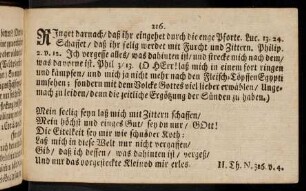 216.
Ringet darnach/ daß ihr eingehet durch die enge Pforte. Luc. 13. 24.
Schaffet/ daß ihr selig werdet mit Furcht und Zittern. Philip.
2. v. 12. Ich vergesse alles/ was dahinten ist/ und strecke mich nach dem/
was davorne ist. Phil 3/13. (O HErr! laß mich in einem fort ringen
und kämpfen/ und mich ja nicht mehr nach den Fleisch-Töpffen Egypti
umsehen; sondern mit dem Volcke Gottes viel lieber erwählen/ Unge-
mach zu leiden/ denn die zeitliche Ergötzung der Sünden zu haben.)
Mein seelig seyn laß mich mit Zittern schaffen/
Mein höchst und einges Gut/ sey du nur/ GOtt!
Die Eitelkeit sey mir wie schnöder Koth:
Laß mich in diese Welt nur nicht vergaffen/
Gib/ daß ich dessen/ was dahinten ist/ vergeß/
Und nur das vorgesteckte Kleinod mir erles.
H. Th. N. 326. v. 4.